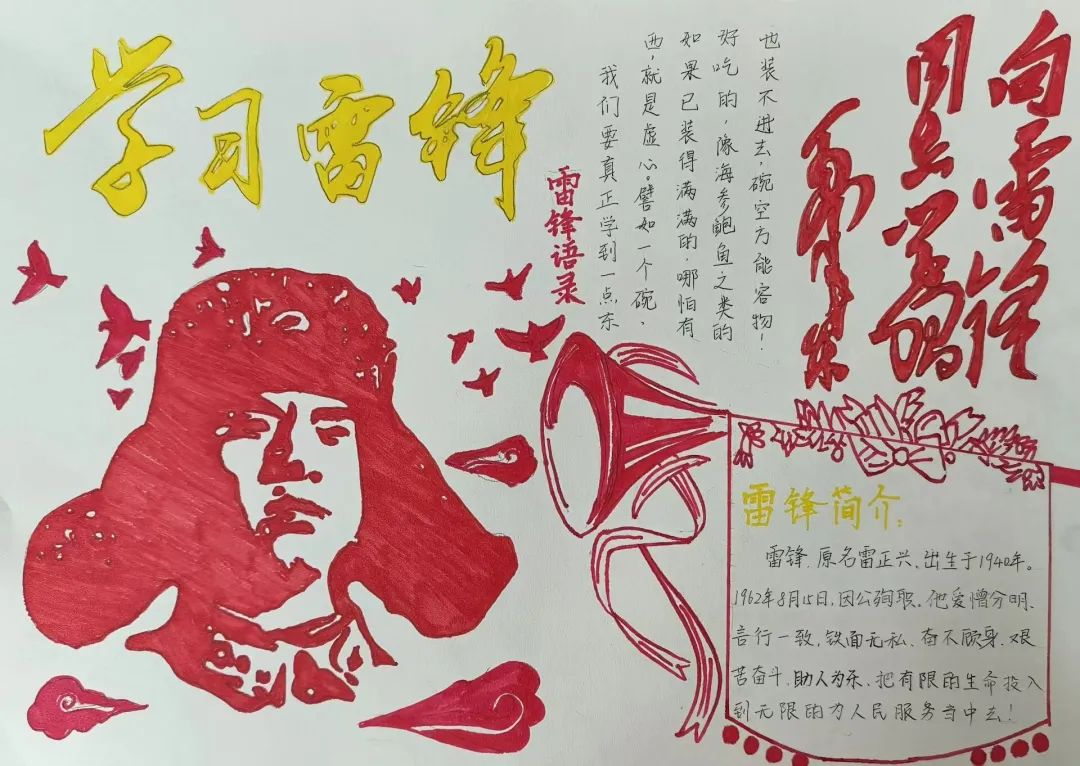 学习雷锋
雷锋语录
我们要真正学到一点东
西,就是虚心。譬如一个碗,
如果已装得满满的,哪怕有
好吃的,像海参鲍鱼之类的
也装不进去,碗空方能容物!
向雷锋
同志学习
毛泽东
雷锋简介:
雷锋、原名雷正兴,出生于1940年。
1962年8月15日,因公殉职。他爱憎分明、
言行一致,铁面无私、奋不顾身、艰
苦奋斗、助人为乐、把有限的生命投入
到无限的为人民服务当中去!